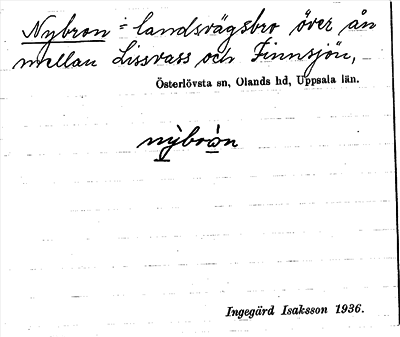 Nybron = landsvägsbro över ån
mellan Lissvass och Finnsjön,
Österlövsta sn, Olands hd, Uppsala län.
nỳbròn
Ingegärd Isaksson 1936.